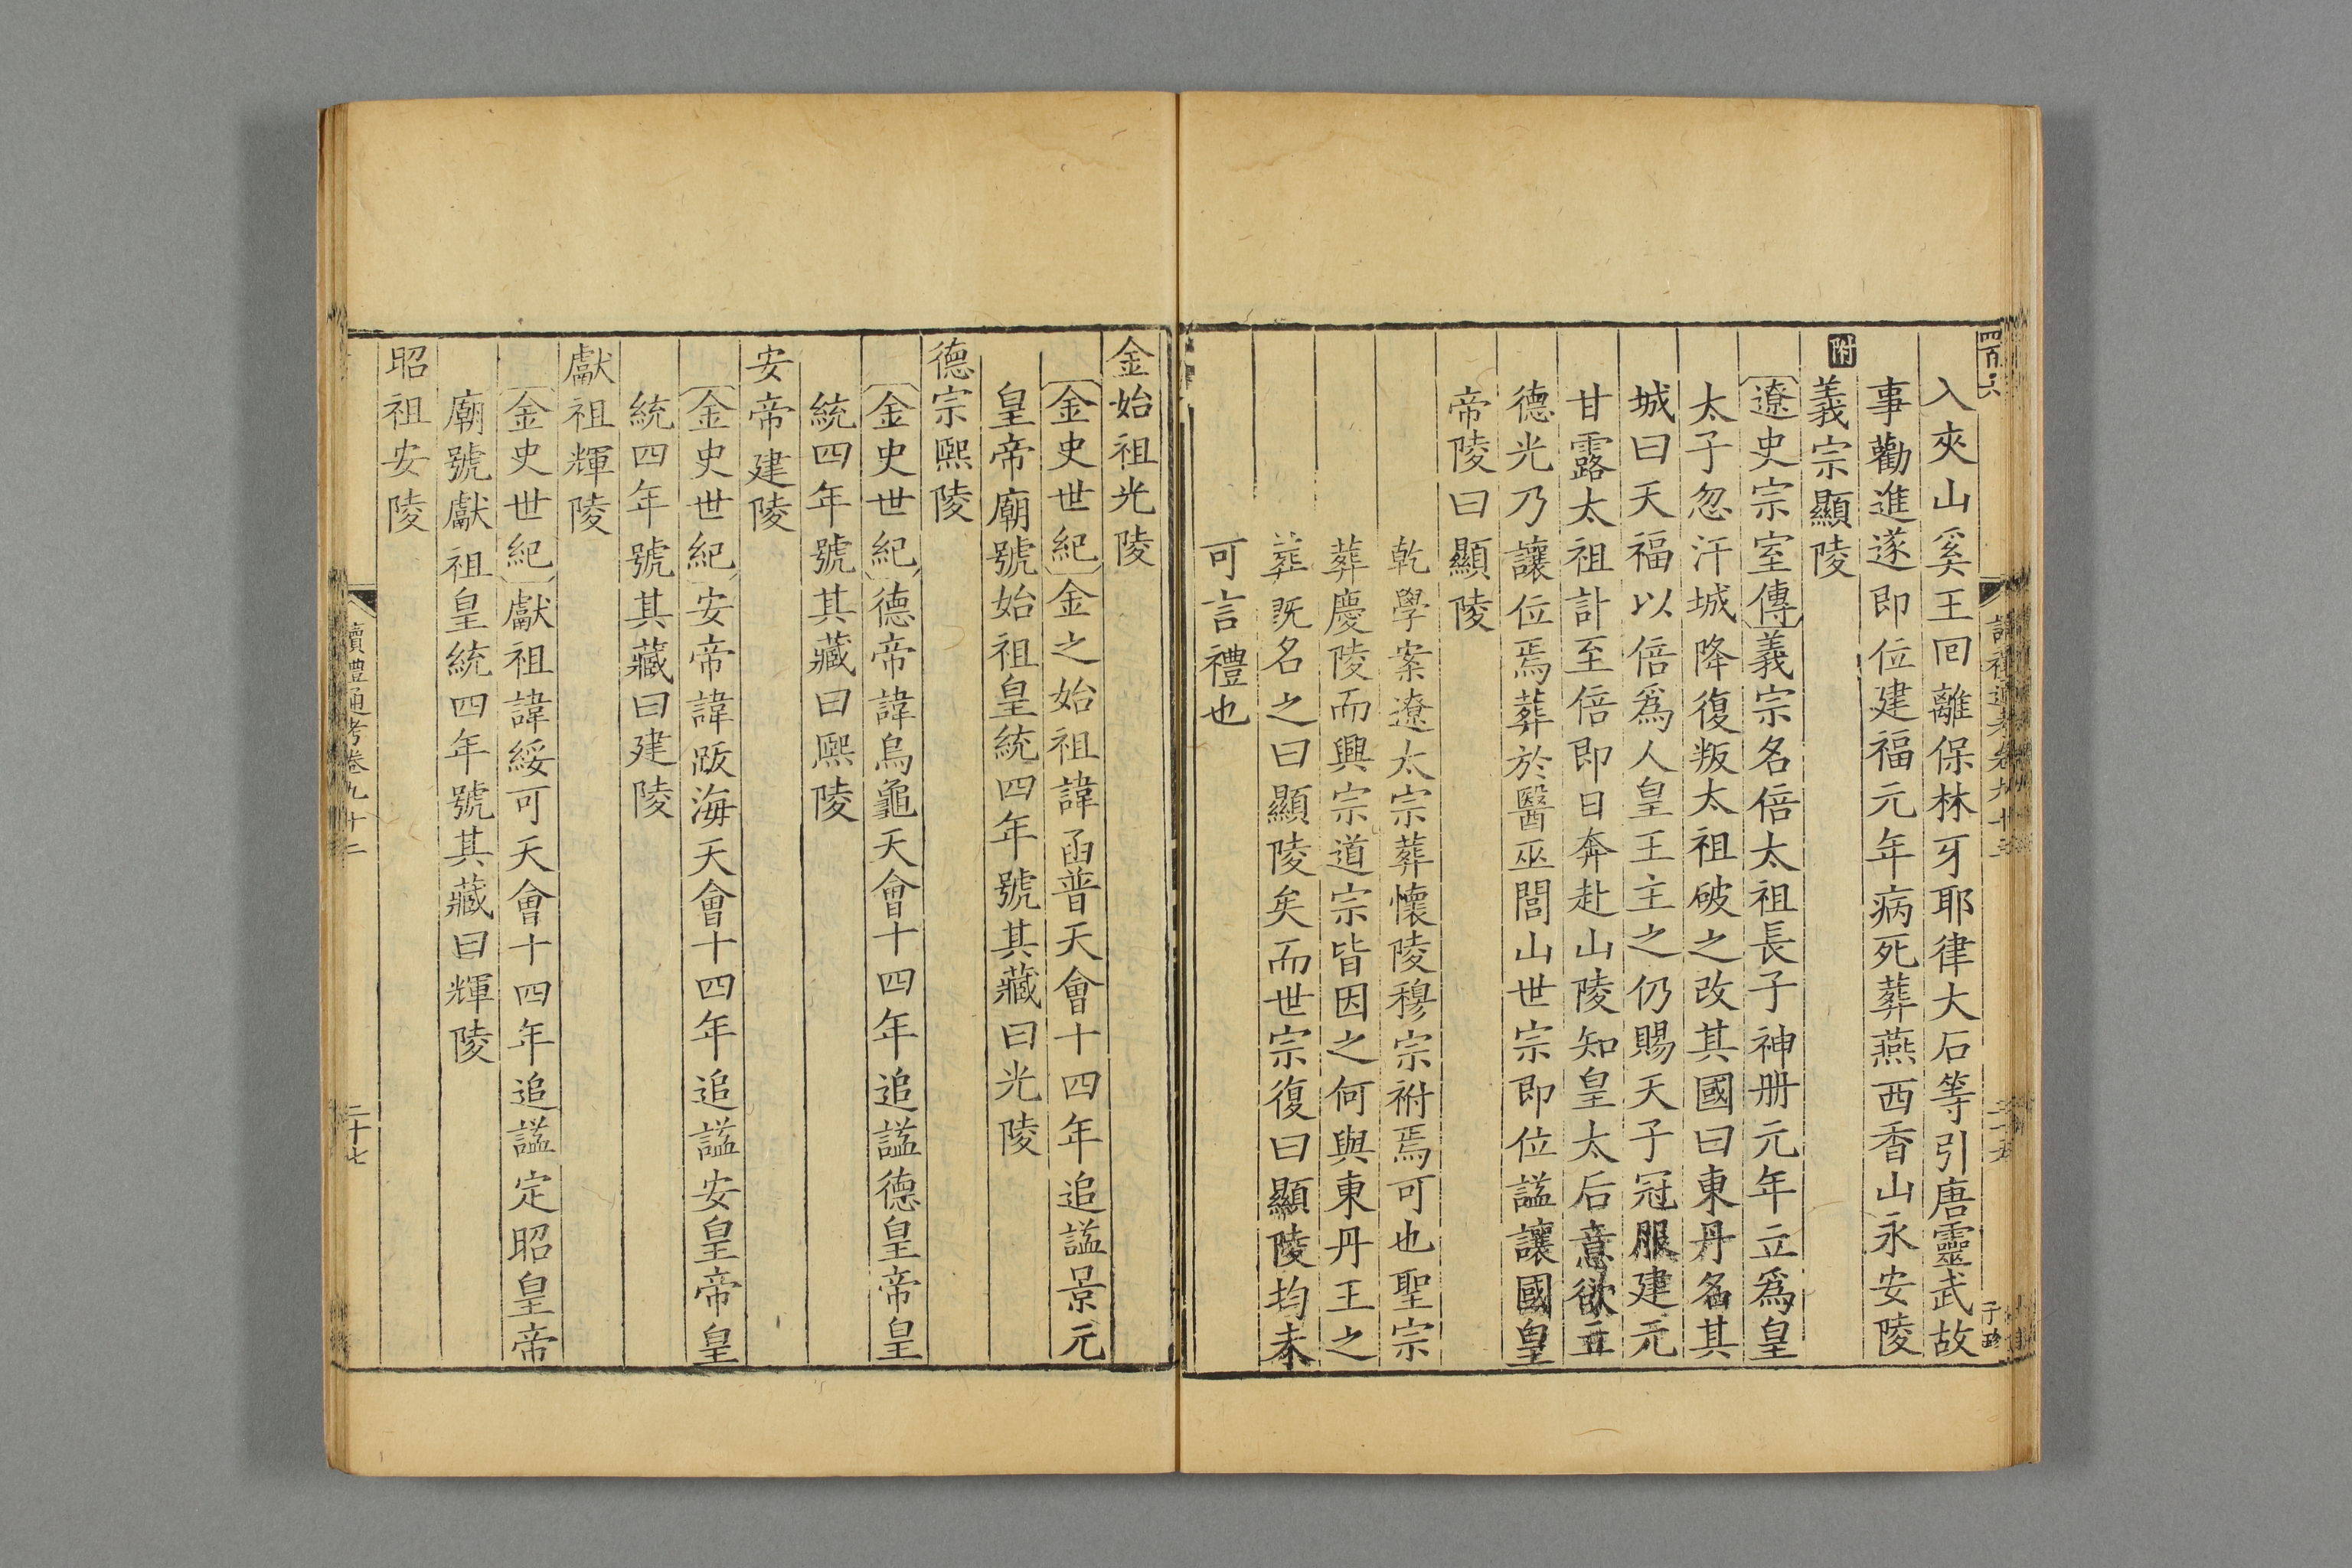 四百六
入夾山奚王回離保林牙耶律大石等引唐靈武故
事勸進遂即位建福元年病死葬燕西香山永安陵
附義宗顯陵
遼史宗室傳義宗名倍太祖長子神册元年立爲皇
太子忽汗城降復叛太祖破之改其國曰東丹名其
城曰天福以倍爲人皇王主之仍賜天子冠服建元
甘露太祖計至倍即日奔赴山陵知皇太后意欲立
德光乃讓位焉葬於醫巫閭山世宗即位諡讓國皇
帝陵曰顯陵
乾學案遼太宗葬懷陵穆宗祔焉可也聖宗
葬慶陵而興宗道宗皆因之何與東丹王之
葬既名之曰顯陵矣而世宗復曰顯陵均未
可言禮也
金始祖光陵
金史世紀金之始祖諱函普天會十四年追諡景元
皇帝廟號始祖皇統四年號其藏曰光陵
德宗熙陵
金史世紀德帝諱烏龜天會十四年追諡德皇帝皇
統四年號其藏曰熙陵
安帝建陵
金史世紀安帝諱䟦海天會十四年追諡安皇帝皇
統四年號其藏曰建陵
獻祖輝陵
金史世紀獻祖諱綏可天會十四年追諡定昭皇帝
廟號獻祖皇統四年號其藏曰輝陵
昭祖安陵
讀禮通考卷九十二
二十七